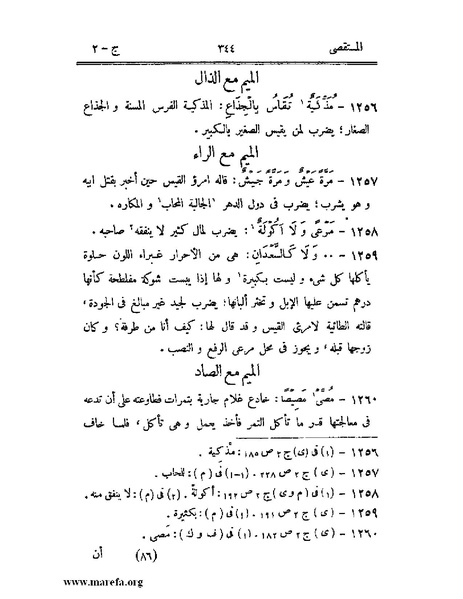 المستقصى ٣٤٤ ج - ٢
الميم مع الذال
١٢٥٦ - مُذَكِّيَةٌ تُقَاسُ بِالْجِذَاعِ: المذكية الفرس المسنة و الجذاع
الصغار؛ يضرب لمن يقيس الصغير بالكبير.
الميم مع الراء
١٢٥٧ - مَرَّةً عَيْشٌ وَ مَرَّةً جَيْشٌ: قاله امرؤ القيس حين أخبر بقتل ابيه
و هو يشرب؛ يضرب فى دول الدهر ١الجالبة للحاب١ و المكاره.
١٢٥٨ - مَرْعًى وَ لَا اَكُولَةَ١: يضرب لمال كثير لا ينفقه٢ صاحبه.
١٢٥٩ - ٠٠ وَ لَا كَالسَّعْدَانِ: هى من الاحرار غبراء اللون حلوة
يأكلها كل شىء و ليست بكبيرة١ و لها إذا يبست شوكة مفلطحة كأنها
درهم تسمن عليها الإبل و تخثر ألبانها؛ يضرب لجيد غير مبالغ فى الجودة،
قالته الطائية لامرئ القيس و قد قال لها: كيف أنا من طرفة؟ و كان
زوجها قبله، و يجوز فى محل مرعى الرفع و النصب.
الميم مع الصاد
١٢٦٠ - مُصِّى١ مَصِيْصًا: خادع غلام جارية بتمرات فطاوعته على أن تدعه
فى معالجتها قدر ما تأكل التمر فأخذ يعمل و هى تأكل، فلما خاف
١٢٥٦ - (١) فى (ى) ج ٢ ص ١٨٥: مذكية.
١٢٥٧ - (ى) ج ٢ ص ٢٢٨. (١-١) فى (م): للحاب.
١٢٥٨ - (١) فى (م و ى) ج ٢ ص ١٩٢: أكولة. (٢) فى (م): لا ينفق منه.
١٢٥٩ - (ى) ج ٢ ص ١٩١. (١) فى (م): بكثيرة.
١٢٦٠ - (ى) ج ٢ ص ١٨٢. (١) فى (ف و ك): مَصى.
(٨٦) أن
www.marefa.org